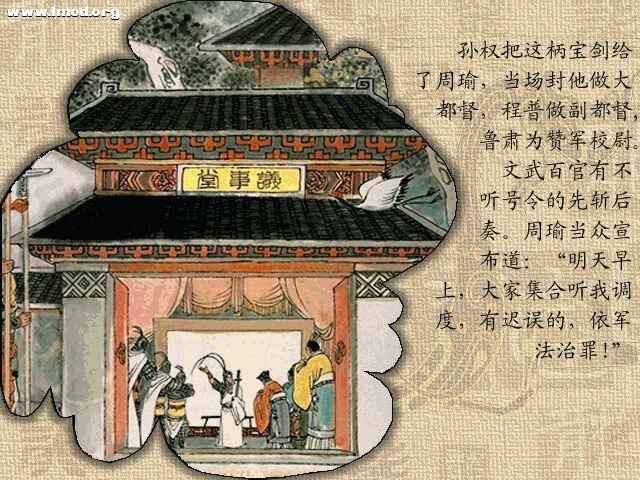 www.1mod.org
孙权把这柄宝剑给
了周瑜，当场封他做大
都督，程普做副都督，
鲁肃为赞军校尉。
文武百官有不
听号令的先斩后
奏。周瑜当众宣
布道：“明天早
上，大家集合听我调
度，有迟误的，依军
法治罪！”
堂事議